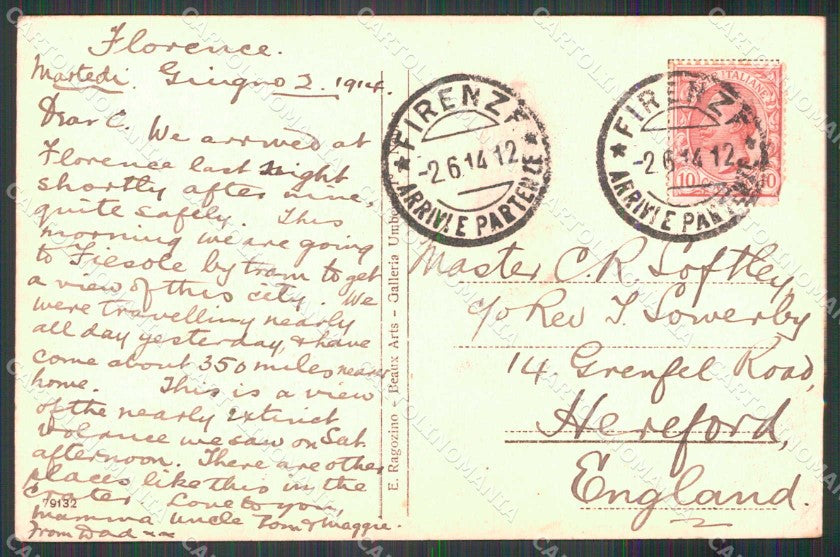 Florence.
Martedi. Giugno 2. 1914.
Dear C. We arrived at
Florence last night
shortly after nine,
quite safely. This
morning we are going
to Fiesole by tram to get
a view of this city. We
were travelling nearly
all day yesterday, & have
come about 350 miles nearer
home. This is a view
of the nearly extinct
volcance we saw on Sat.
afternoon. There are other
places like this in the
Crater. Love to you,
79132
Mamma uncle Tom & Maggie.
From Dad xx
E. Ragozino - Beaux Arts - Galleria Umbe
FIRENZE
-2.6.14 12
ARRIVI E PARTENZE
FIRENZE
-2.6.14 12
ARRIVI E PARTENZE
ITALIANE
10 10
Master C R Softley
c/o Rev J. Sowerby
14. Grenfel Road,
Hereford,
England.
CARTOLINOMANIA